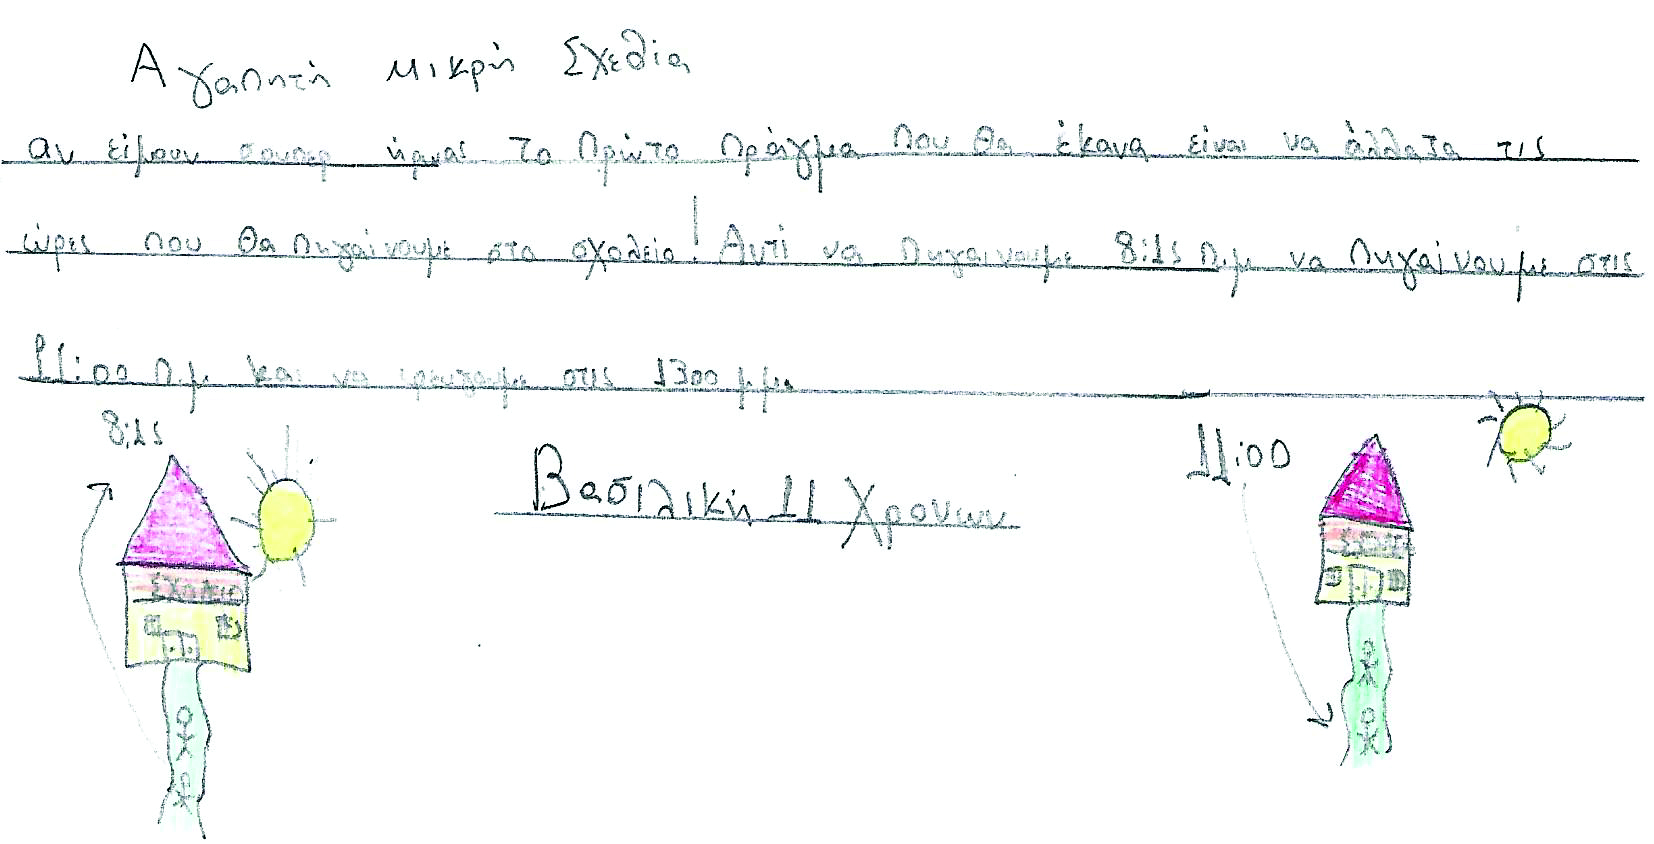 Αγαπητή μικρή Σχεδία
αν είμουν σουπερ ήρωας το πρώτο πράγμα που θα έκανα είναι να άλλαζα τις
ώρες που θα πηγαίνουμε στο σχολείο! Αντί να πηγαινουμε 8:15 π.μ να πηγαίνουμε στις
11:00 π.μ και να φευγουμε στις 1300 μ.μ.
8:15
11:00
Βασιλική 11 χρονων
Σχολείο
Σχολείο